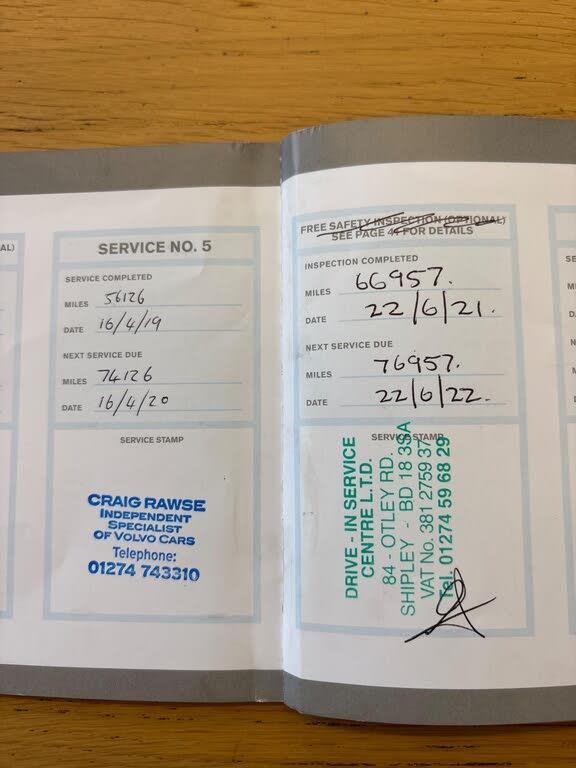 AL)
SERVICE NO. 5
SERVICE COMPLETED
MILES 56126
DATE 16/4/19
NEXT SERVICE DUE
MILES 74126
DATE 16/4/20
SERVICE STAMP
CRAIG RAWSE
INDEPENDENT
SPECIALIST
OF VOLVO CARS
Telephone:
01274 743310
FREE SAFETY INSPECTION (OPTIONAL)
SEE PAGE 41 FOR DETAILS
INSPECTION COMPLETED
MILES 66957.
DATE 22/6/21.
NEXT SERVICE DUE
MILES 76957.
DATE 22/6/22.
SERVICE STAMP
DRIVE-IN SERVICE
CENTRE L.T.D.
84 - OTLEY RD.
SHIPLEY - BD 18 3SA
VAT No. 381 2759 37
Tel. 01274 59 68 29
SE
M
D
N
M
D